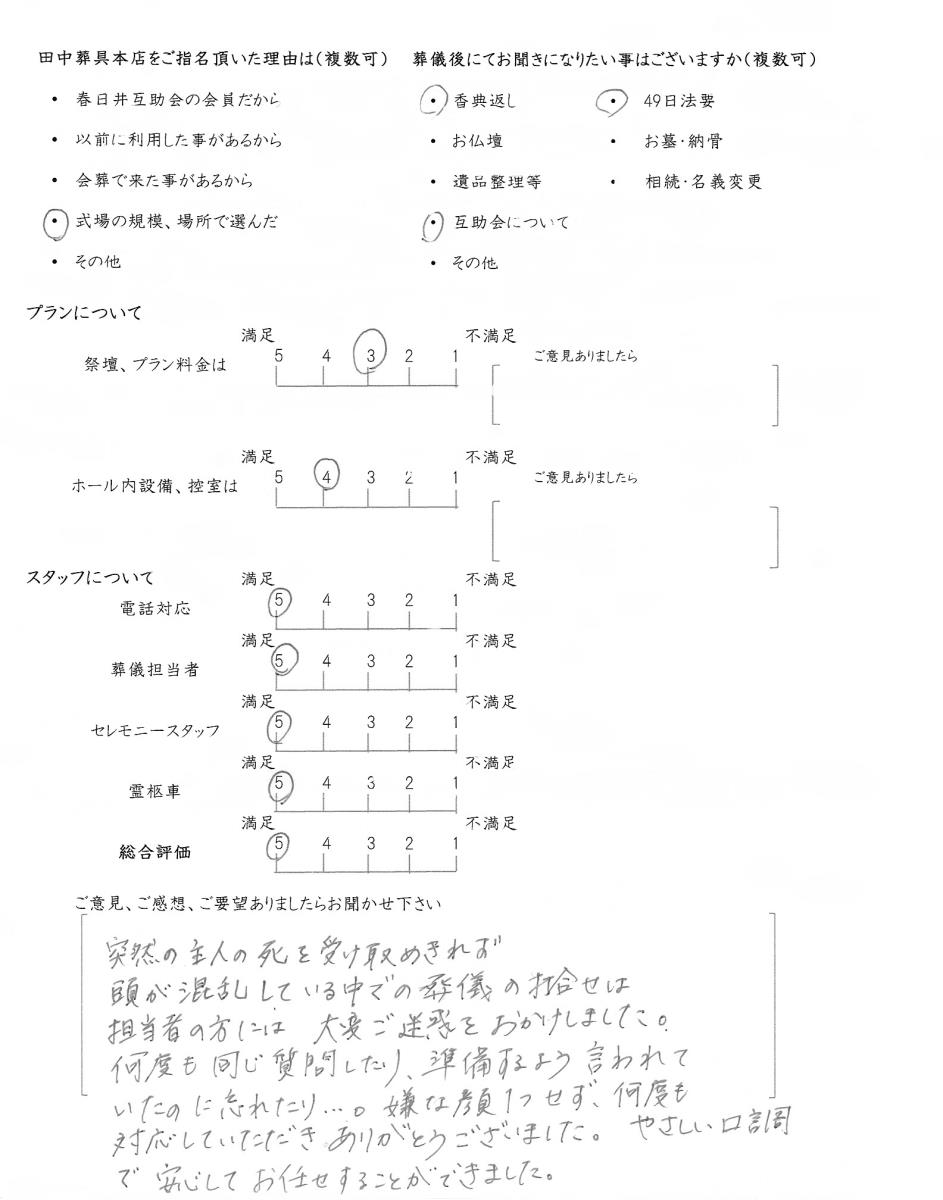 田中葬具本店をご指名頂いた理由は(複数可)
・ 春日井互助会の会員だから
・ 以前に利用した事があるから
・ 会葬で来た事があるから
・ 式場の規模、場所で選んだ
・ その他
葬儀後にてお聞きになりたい事はございますか(複数可)
・ 香典返し ・ 49日法要
・ お仏壇 ・ お墓・納骨
・ 遺品整理等 ・ 相続・名義変更
・ 互助会について
・ その他
プランについて
満足 不満足
祭壇、プラン料金は 5 4 3 2 1 ご意見ありましたら
満足 不満足
ホール内設備、控室は 5 4 3 2 1 ご意見ありましたら
スタッフについて 満足 不満足
電話対応 5 4 3 2 1
満足 不満足
葬儀担当者 5 4 3 2 1
満足 不満足
セレモニースタッフ 5 4 3 2 1
満足 不満足
霊柩車 5 4 3 2 1
満足 不満足
総合評価 5 4 3 2 1
ご意見、ご感想、ご要望ありましたらお聞かせ下さい
突然の主人の死を受け取めきれず
頭が混乱している中での葬儀の打合せは
担当者の方には 大変ご迷惑をおかけしました。
何度も同じ質問したり、準備するよう言われて
いたのに忘れたり…。嫌な顔1つせず、何度も
対応していただきありがとうございました。 やさしい口調
で安心してお任せすることができました。